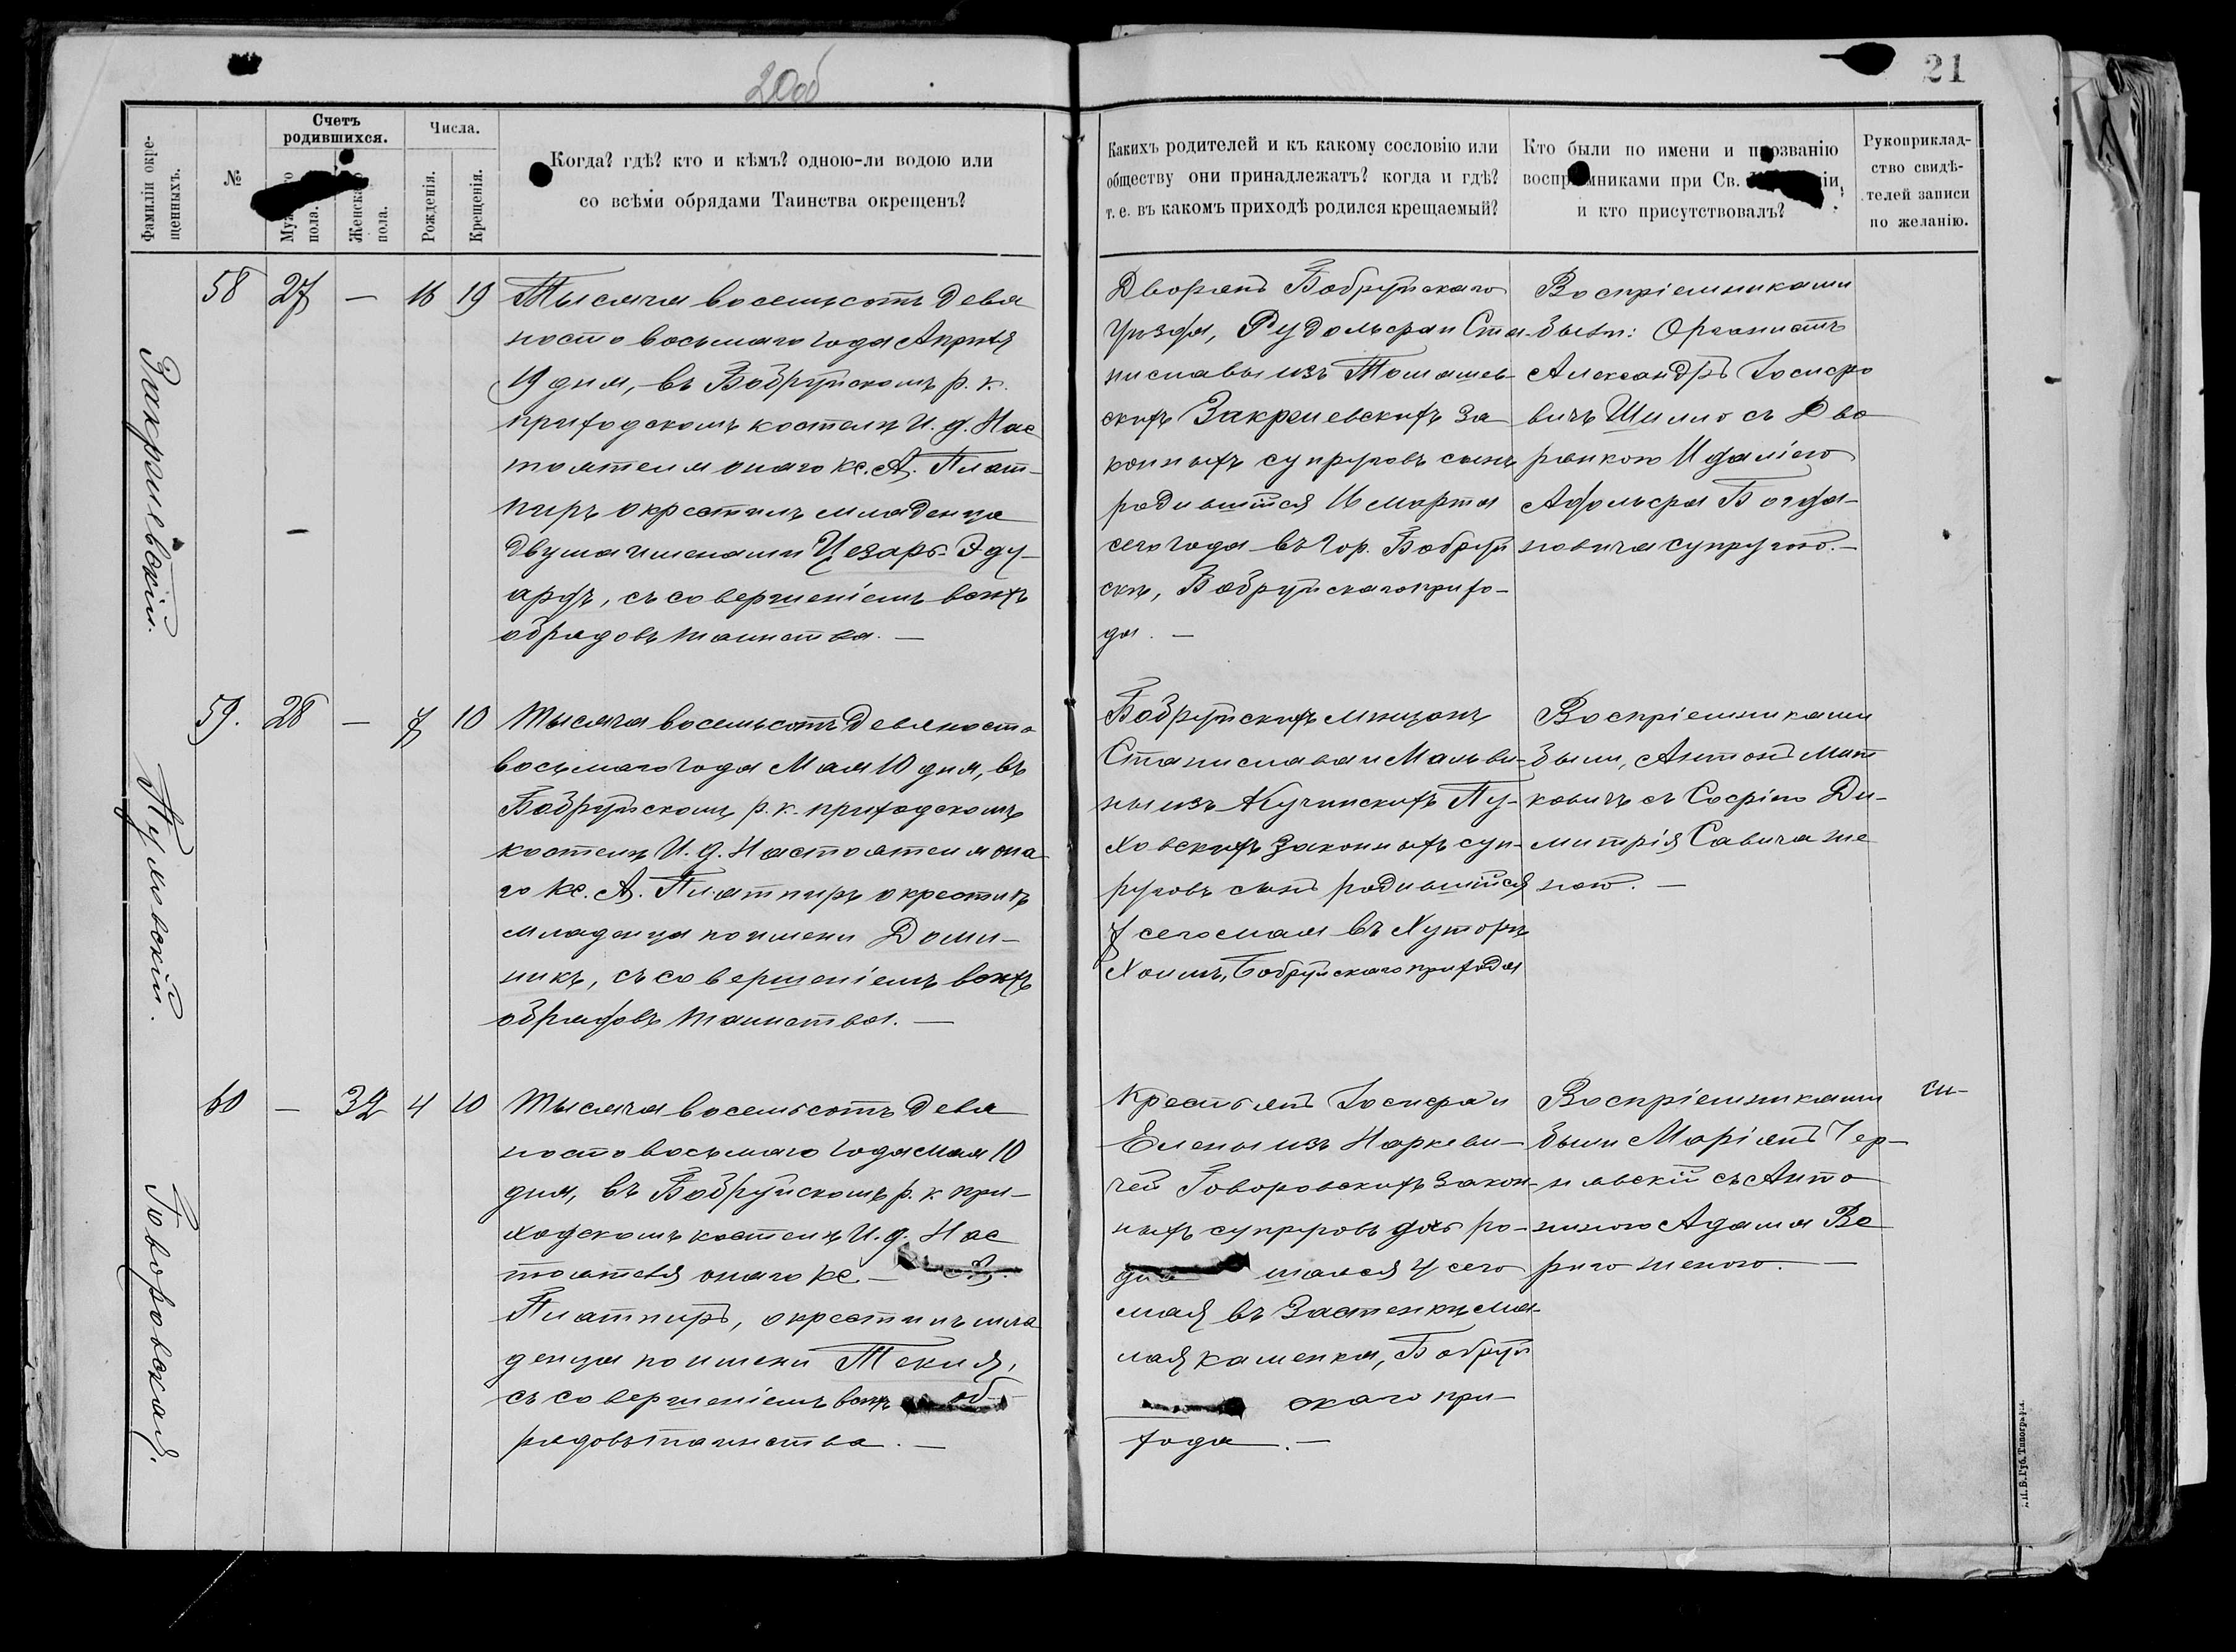 20об
21
Фамиліи окре-
щенныхъ.
№
Счетъ
родившихся.
пола.
Женскаго
пола.
Числа.
Рожденія.
Крещенія.
Когда? гдѣ? кто и кѣмъ? одною-ли водою или
со всѣми обрядами Таинства окрещенъ?
Каких​ъ родителей и къ какому сословію или
обществу они принадлежатъ? когда и гдѣ?
т. е. въ какомъ приходѣ родился крещаемый?
Кто были по имени и прозванію
воспріемниками при Св.
и кто присутствовалъ?
Рукоприклад-
ство свидѣ-
телей записи
по желанію.
Закршевскій.
58 27 — 16 19
Тысяча восемьсотъ девя
носто восьмаго года Апрѣля
19 дня, въ Бобруйскомъ р. к.
приходскомъ костелѣ И. д. Нас
тоятеля онаго кс. А. Плат-
пиръ окрестилъ младенца
двумя именами Цезарь-Эду-
ардъ, съ совершеніемъ всѣхъ
обрядовъ таинства. —
Дворянъ Бобруйскаго
уѣзда, Рудольфа и Ста-
ниславы изъ Томашев-
скихъ Закршевскихъ за
конныхъ супруговъ сынъ
родившійся 16 марта
сего года въ гор. Бобруй
скѣ, Бобруйскаго прихо-
да. —
Воспріемниками
были: Органистъ
Александръ Іосифо
вичъ Шилло съ Дво
рянкою Идаліею
Адольфа Богда-
новича супругою. —
Пуховскій.
59. 28 — 7 10
Тысяча восемьсотъ девяносто
восьмаго года Мая 10 дня, въ
Бобруйскомъ р. к. приходскомъ
костелѣ И. д. Настоятеля она
го кс. А. Платпиръ окрестилъ
младенца по имени Доми-
никъ, съ совершеніемъ всѣхъ
обрядовъ таинства. —
Бобруйскихъ мѣщанъ
Станислава и Мальви-
ны изъ Кучинскихъ Пу-
ховскихъ законныхъ суп-
руговъ сынъ родившійся
7 сего мая въ Хуторѣ
Бобруйскаго прихода
Воспріемниками
были, Антонъ Мит
ковичъ съ Софіею Ди-
митрія Савича же
ною. —
Говоровская.
60 — 32 4 10
Тысяча восемьсотъ девя
носто восьмаго года мая 10
дня, въ Бобруйскомъ р. к при-
ходскомъ костелѣ И. д. Нас
тоятеля онаго кс. — А.
Платпиръ, окрестилъ мла
денца по имени Текля,
съ совершеніемъ всѣхъ об-
рядовъ таинства. —
Крестьянъ Іосифа и
Елены изъ Наркеви-
чей Говоровскихъ закон-
ныхъ супруговъ дочь ро-
ди шаяся 4 сего
мая въ Застенкѣ Ма-
лая каменка, Бобруй
скаго при-
хода. —
Воспріемниками
были Маріянъ Чер-
нявскій съ Анто
ниною Адама Ве
риго женою. —
Л.П.В. Губ. Типографія.